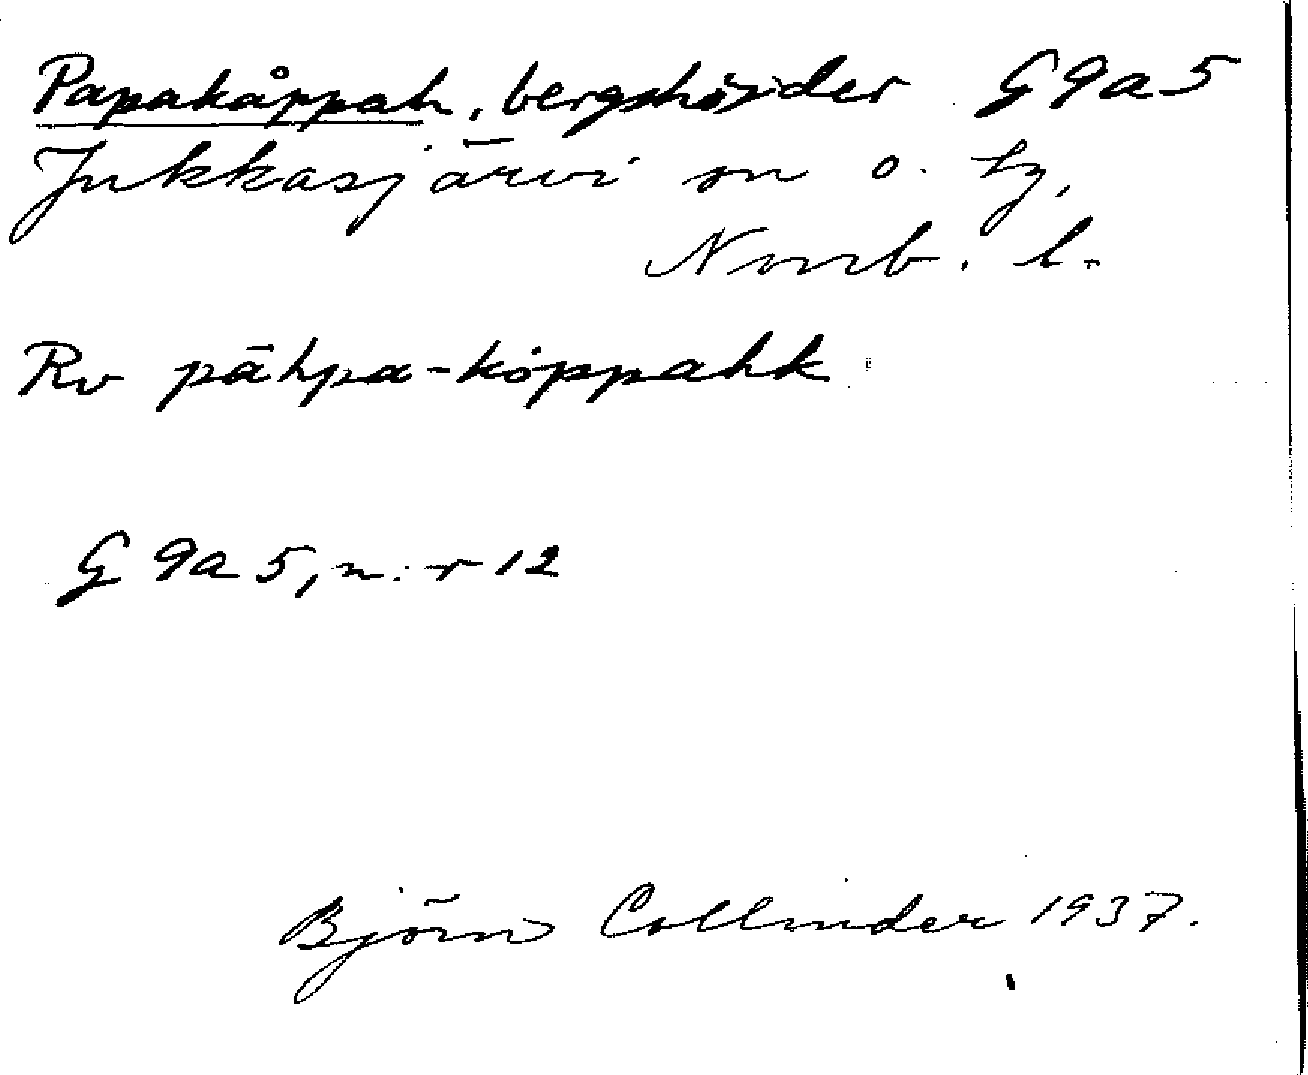 Papakåppah, bergshöjder G9a5
Jukkasjärvi sn o. tg,
Norrb. l.
Rv pāhpa-kåppahk
G 9a 5, n:r 12
Björn Collinder 1937.